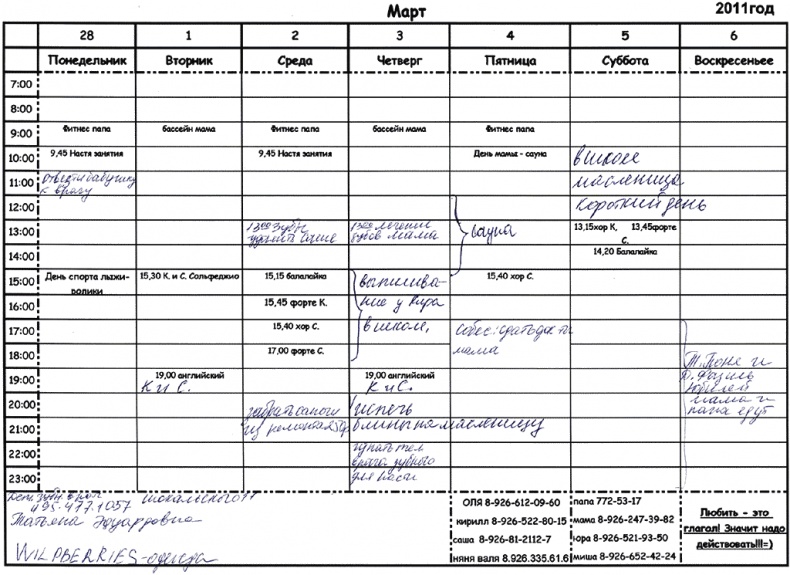 Март 2011год
28 1 2 3 4 5 6
Понедельник Вторник Среда Четверг Пятница Суббота Воскресеньее
7:00
8:00
9:00 Фитнес папа бассейн мама Фитнес папа бассейн мама Фитнес папа
10:00 9,45 Настя занятия 9,45 Настя занятия День мамы - сауна в школе
11:00 отвезти бабушку масленица
к врачу
12:00 короткий день
13:00 13:00 зубы 13:00 лечение сауна 13,15хор К, 13,45форте
удалить зубов мама С.
14:00 14,20 Балалайка
15:00 День спорта лыжи- 15,30 К. и С. Сольфеджио 15,15 балалайка выпилива- 15,40 хор С.
ролики
16:00 15,45 форте К. ние у Кира
17:00 15,40 хор С. в школе, Собес: сдать
18:00 17,00 форте С. мама
Т. Тоне и
19:00 19,00 английский 19,00 английский
К и С. К и С. юбилей
мама и
20:00 забрать сапоги испечь папа едут
21:00 из ремонта блины на масленицу
22:00 узнать тел
врача зубного
23:00 для Насти
495-477-1057
Татьяна Эдуардовна
WILDBERRIES-одежда
ОЛЯ 8-926-612-09-60 папа 772-53-17
кирилл 8-926-522-80-15 мама 8-926-247-39-82
саша 8-926-81-2112-7 юра 8-926-521-93-50
няня валя 8.926.335.61.6 миша 8-926-652-42-24
Любить - это
глагол! Значит надо
действовать!!!=)